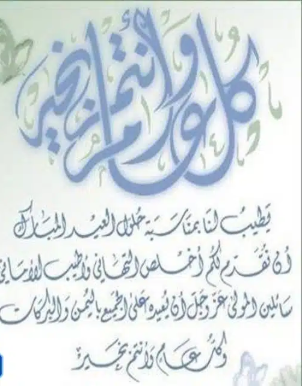 كل عام وأنتم بخير
يطيب لنا بمناسبة حلول العيد المبارك
أن نقدم لكم أخلص التهاني وأطيب الأماني
سائلين المولى عز وجل أن يعيده على الجميع باليمن والبركات
وكل عام وأنتم بخير